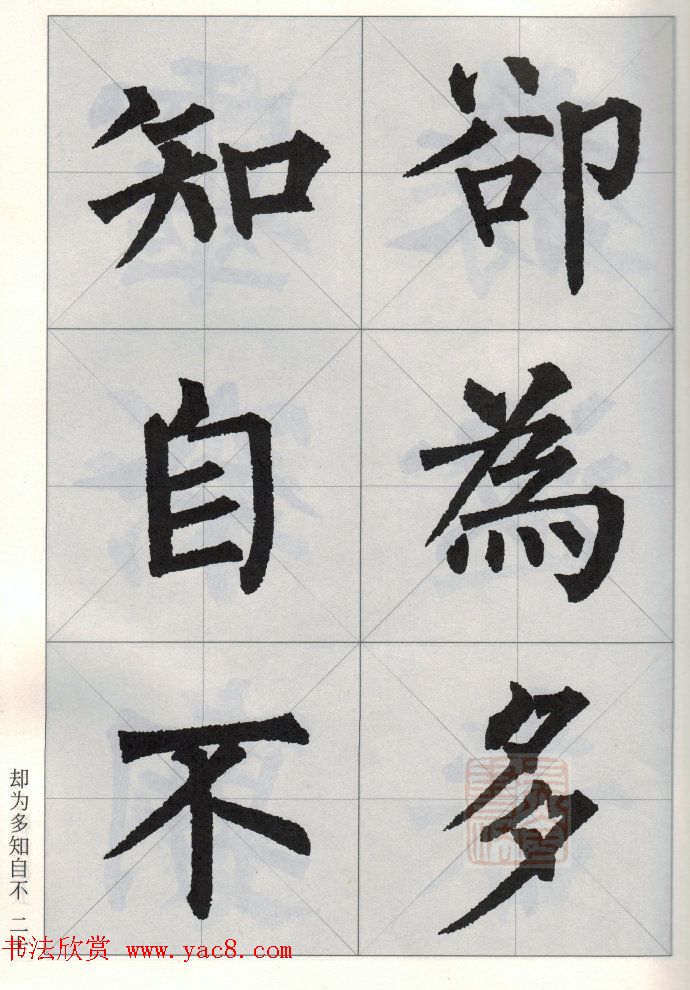 卻為多
知自不
却为多知自不
书法欣赏 www.yac8.com